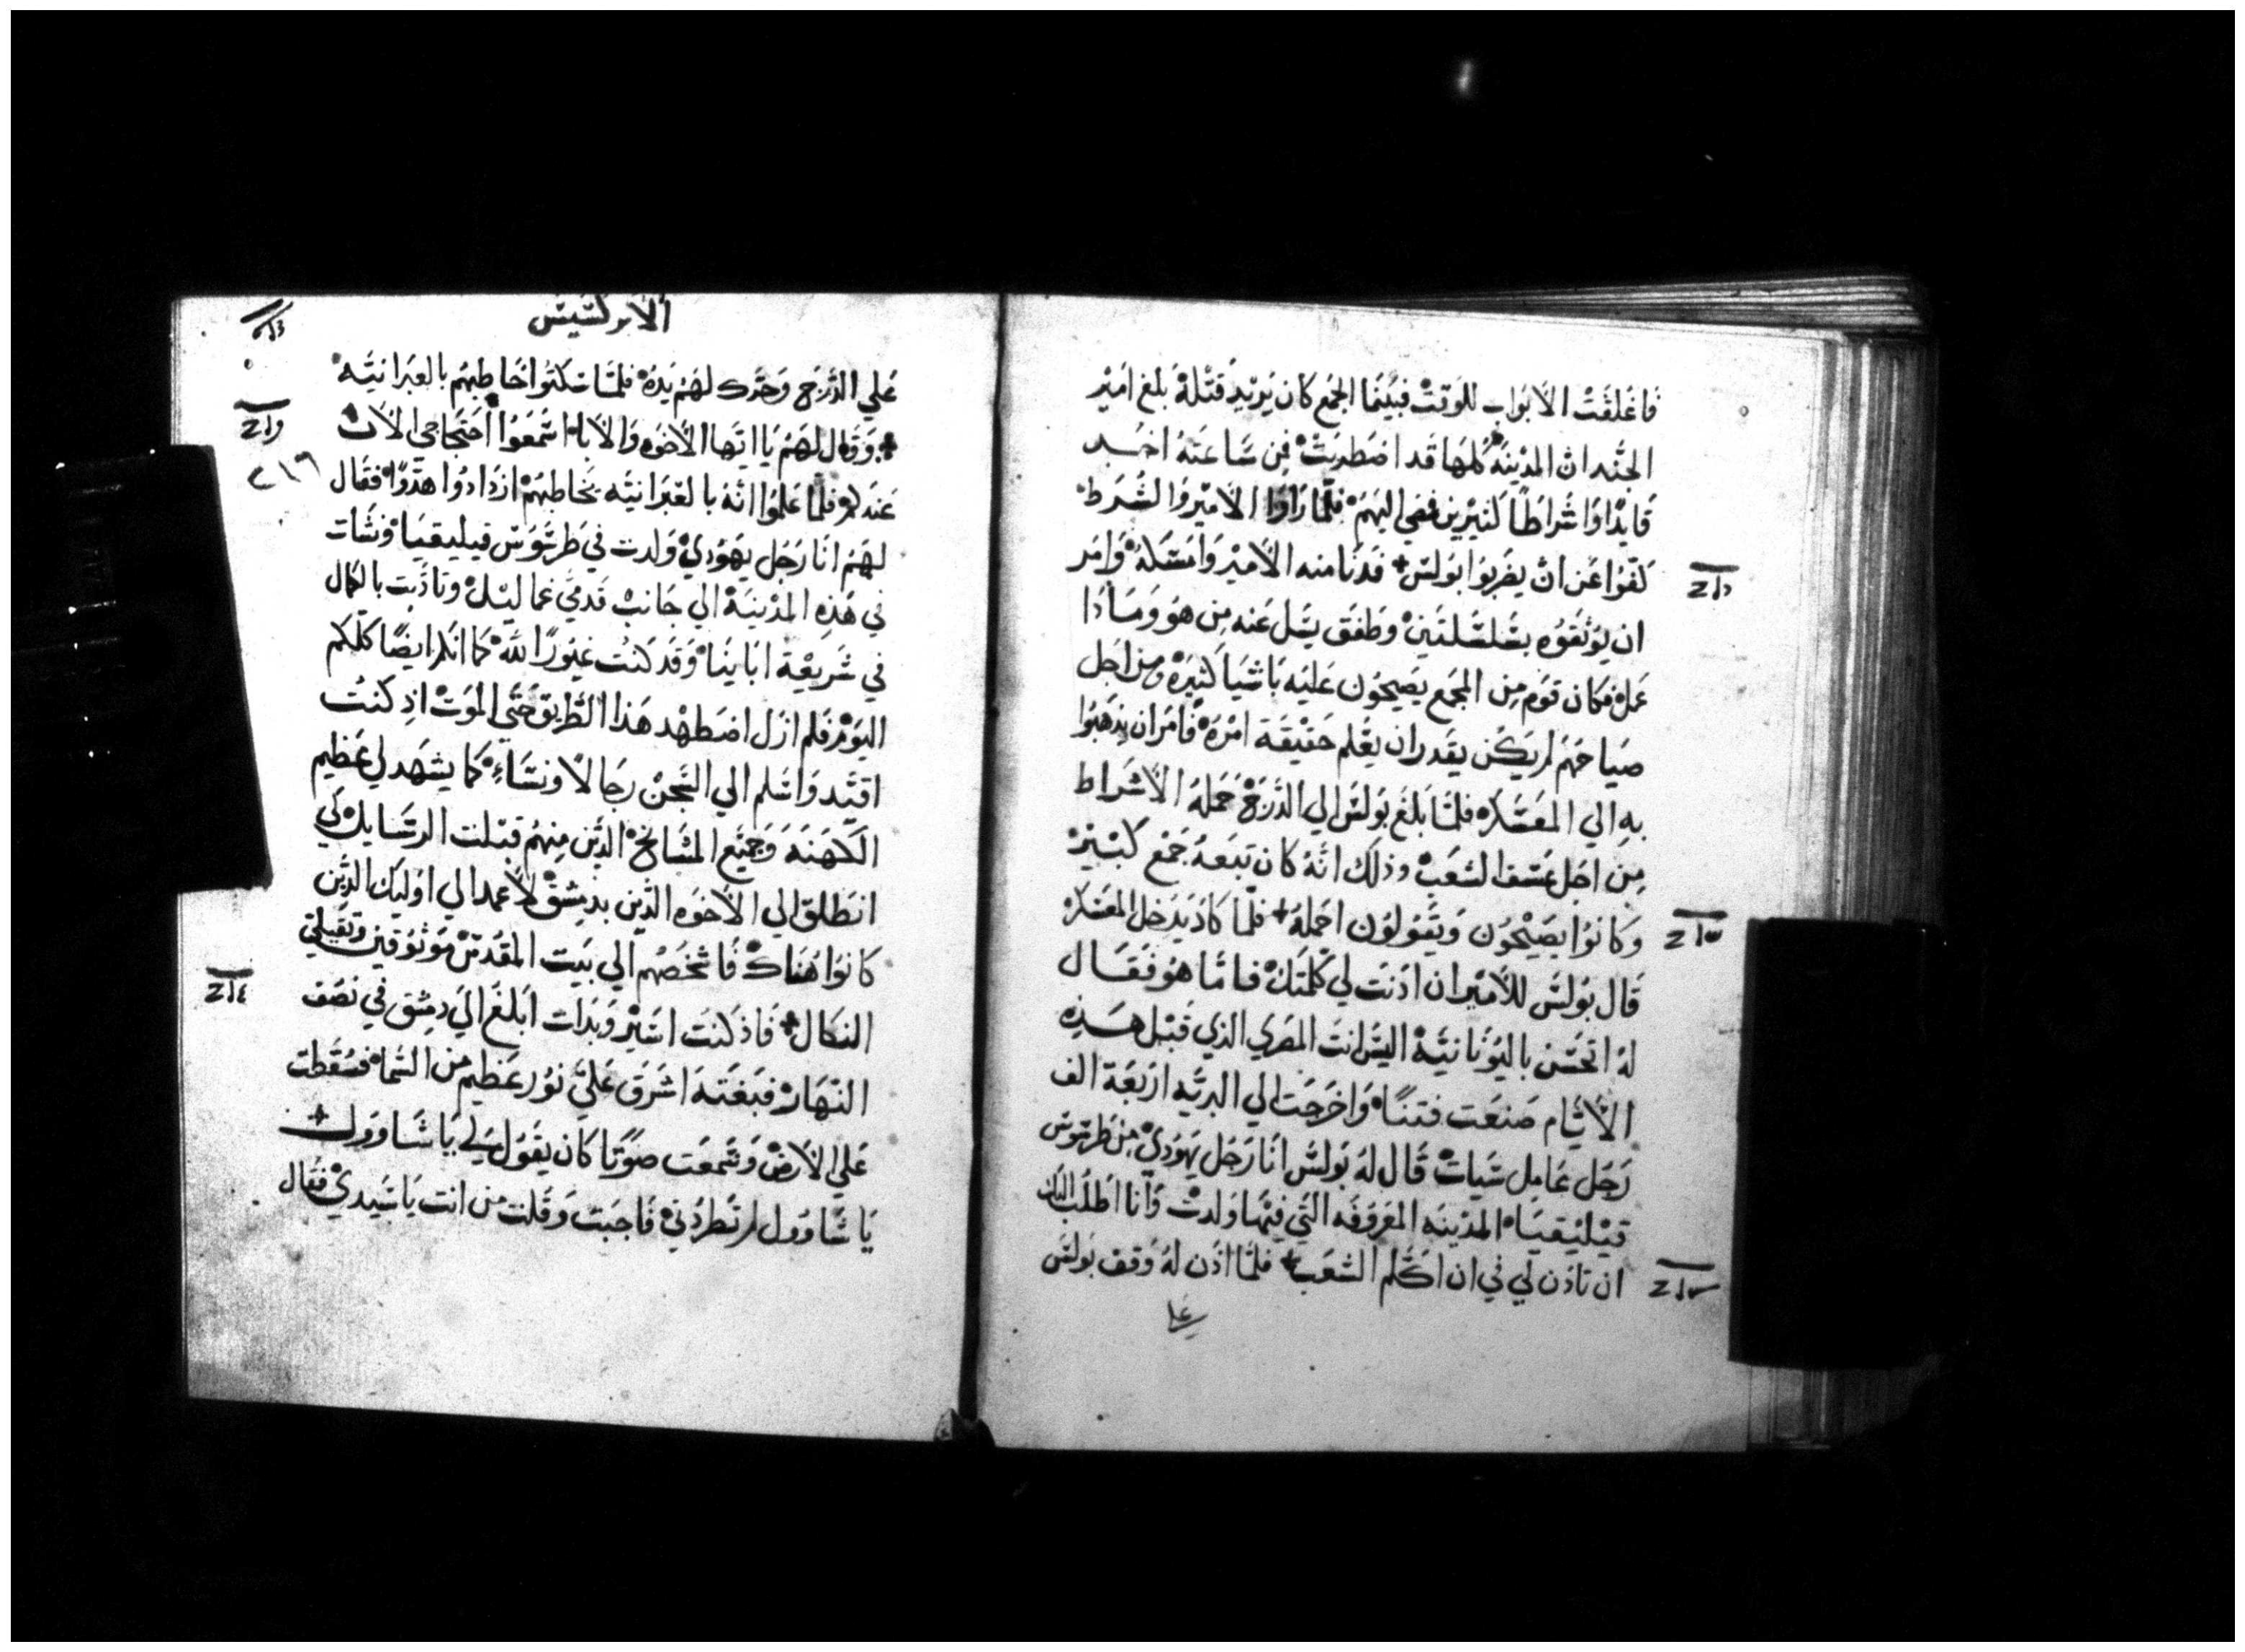 فَاغلقَتْ الأبوَاب للوَقتْ فبَينمَا الجَمع كان يَريْد قَتْلهْ بلغ اميْر
الجُند ان المدْينَهْ كلهَا قد اضطربَتْ فِن سَاعَتهُ اخـَـد
قَايدًا وَاشراطاً كثيْرين فمضي اليهَمْ فلمّا رَاوَا الاميْر وَالشُرط
كفوُا عَن انْ يضرِبوُا بوُلسْ ✢ فدَنَا منه الأميْر وَامسَكهُ وَامَر
ان يوُثقوُه بسَلسَلتَينْ وَطفقَ يسَل عَنه مِن هوُ وَمَـاذَا
عَمل فكان قوَم مِن المجمَع يَصيحوُن عَليَه بَاشيَا كثيرَهْ ومِن اجَل
صيَاحهَم لم يكُن يقَدر ان يعَلم حَقيقَة امْرهْ فَامَر ان يذهَبوُا
بهِ الي المعَسْكرْ فلمَّا بَلغَ بوُلسْ الي الدَرَجْ حَمَلهُ الأشرَاط
مِن اجَل عَسَف الشعَبْ وذلك انَّهُ كان تبعَهُ جَمْع كبْـيرْ
وَكانوُا يصَيْحوُن وَيَقوُلوُن احمَلهُ ✢ فلمّا كادَ يدَخل المعَسْكرْ
قَال بوُلسَ للاميْر ان اذنَت لي كلمَتَكْ فـامَّا هوُ فقـَـال
لهُ اتحْسَن باليوُنَانيَّهْ اليسَ انتَ المصَري الذي قَبْل هـَـذِه
الأيَّام صَنعَت فتنًا وَاخرَجت الي البريَّه ارَبعَة الف
رَجَل عَامِل سَيات قَال لهُ بوُلسَ انَا رَجُل يهوُديْ مِن طَرسوُسْ
قيْليقيَا المدْينَه المعَروُفَه التَّي فيهَا ولدتْ وَانا اطلَبُ اليك
ان تاذن لي في ان اكلّم الشعَبْ ✢ فلمَّا اذَن لهُ وَقف بوُلسَ
علي
الأبركسَيسْ
عَلي الدَرَج وَحَرَّك لهَمْ يَدهْ فلمَّا سَكتوُا خَاطبهُم بالعِبَرانيَّهْ
✢ وَقال لهَمْ يَا ايَّها الأخوَه وَالأباءْ اسَمعوُا احَتجَاجي الأنْ
عَندَكمْ فلمَّا عَلموُا انَّهُ بالعْبَرانيَّه يخَاطبهَمْ ازدَادوُا هدّوًا فقَال
لهَمْ انَا رَجُل يهوُديْ وَلدت في طَرسوُسْ قيليقيَا وَنشَات
في هَذهِ المدْينَهْ الي جَانبْ قدَميْ غمَاليْلْ وتاذَبت بالكمال
في شَريعَة ابَاينَا وَقد كنُت غيوُرًا للّهْ كما انَكم ايضًا كلكم
اليوَمْ فَلم ازَل اضطهد هَذا الطَريق حَتَّي الموَتْ اذ كنُت
اقيَّد وَاسَلم الي السَجنْ رجَالاً وَنسَاءْ كما يشهَد لي عَظيم
الكهَنَه وَجَميَع المشَايخْ الذَين منهمْ قبَلت الرسَايلْ لكي
انطَلق الي الأخوَه الذَين بدِمشقْ لأعمد الي اوُليْك الذَين
كانوُا هنَاكْ فَاشخَصهُم الي بَيت المقدسْ موَثوُقينْ وَيَقبلون
النكال ✢ فَاذ كنَت اسَيْر وَبدَات ابَلغَ الي دمِشق في نصَف
النهَارْ فبَغتَهَ اشَرق عَليَّ نوُر عَظيم من السَّماءْ فسَقطت
عَلي الأرضْ وَسَمعَت صوَتًا كان يقَوُل لي يَا شَـاووُلْ
يَا شَاووُل لم تَطردُنيْ فَاجَبت وَقَلت من انت يَا سَيدي فقَال